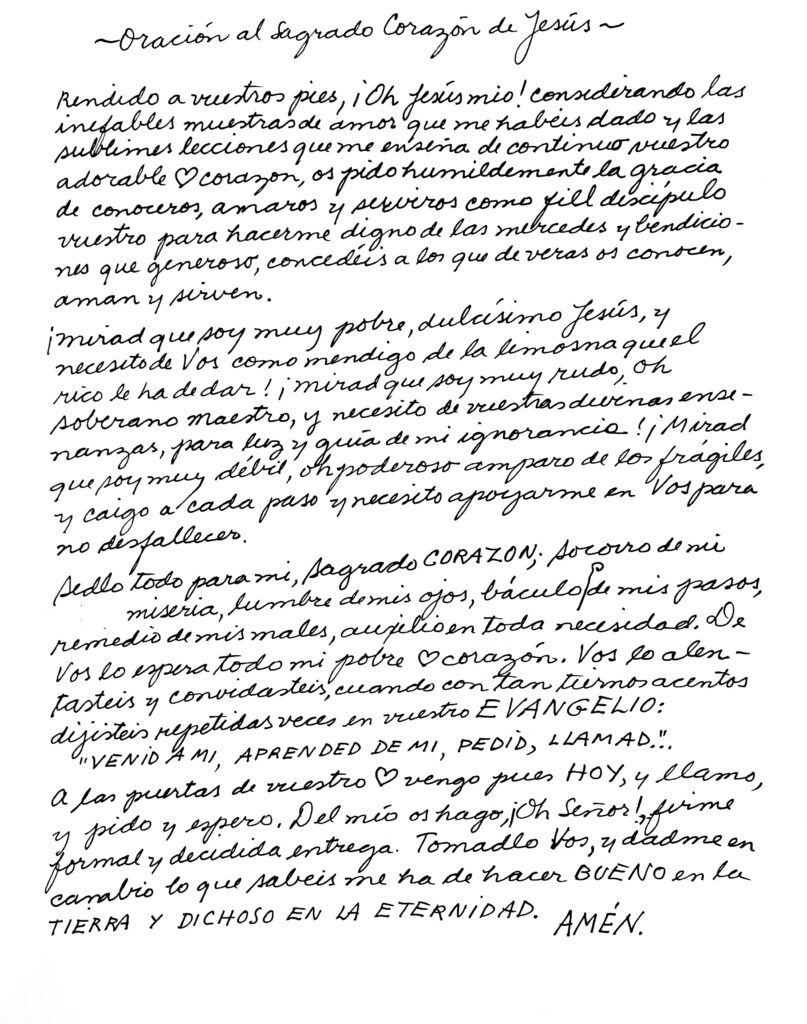 ~Oración al Sagrado Corazón de Jesús~
Rendido a vuestros pies, ¡Oh Jesús mio! considerando las
inefables muestras de amor que me habéis dado y las
sublimes lecciones que me enseña de continuo vuestro
adorable ♡ corazon, os pido humildemente la gracia
de conoceros, amaros y serviros como fill discípulo
vuestro para hacerme digno de las mercedes y bendicio-
nes que generoso, concedéis a los que de veras os conocen,
aman y sirven.
¡Mirad que soy muy pobre, dulcísimo Jesús, y
necesito de Vos como mendigo de la limosna que el
rico le ha de dar! ¡Mirad que soy muy rudo, Oh
soberano Maestro, y necesito de vuestras divinas ense-
nanzas, para luz y guía de mi ignorancia! ¡Mirad
que soy muy débil, oh poderoso amparo de los frágiles,
y caigo a cada paso y necesito apoyarme en Vos para
no desfallecer.
Sedlo todo para mi, Sagrado CORAZON; Socorro de mi
miseria, lumbre de mis ojos, báculo de mis pasos,
remedio de mis males, auxilio en toda necesidad. De
Vos lo espera todo mi pobre ♡ corazón. Vos lo alen-
tasteis y convidasteis, cuando con tan tiernos acentos
dijisteis repetidas veces en vuestro EVANGELIO:
"VENID A MI, APRENDED DE MI, PEDID, LLAMAD.".
A las puertas de vuestro ♡ vengo pues HOY, y llamo,
y pido y espero. Del mío os hago, ¡Oh Señor!, firme
formal y decidida entrega. Tomadlo Vos, y dadme en
cambio lo que sabéis me ha de hacer BUENO en la
TIERRA Y DICHOSO EN LA ETERNIDAD. AMÉN.